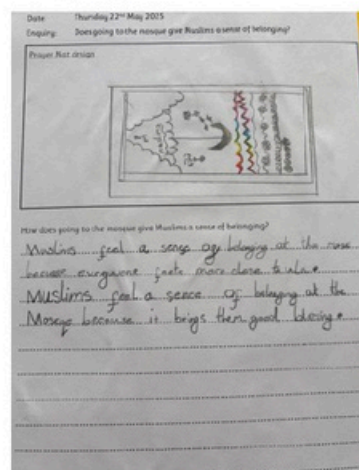 Date Thursday 22nd May 2025
Enquiry: Does going to the mosque give Muslims a sense of belonging?
Prayer Mat design
How does going to the mosque give Muslims a sense of belonging?
Muslims feel a sense of beloging at the
because everyone feels more close to
Muslims feel a sence of belaging at the
because it brings them good blessing.